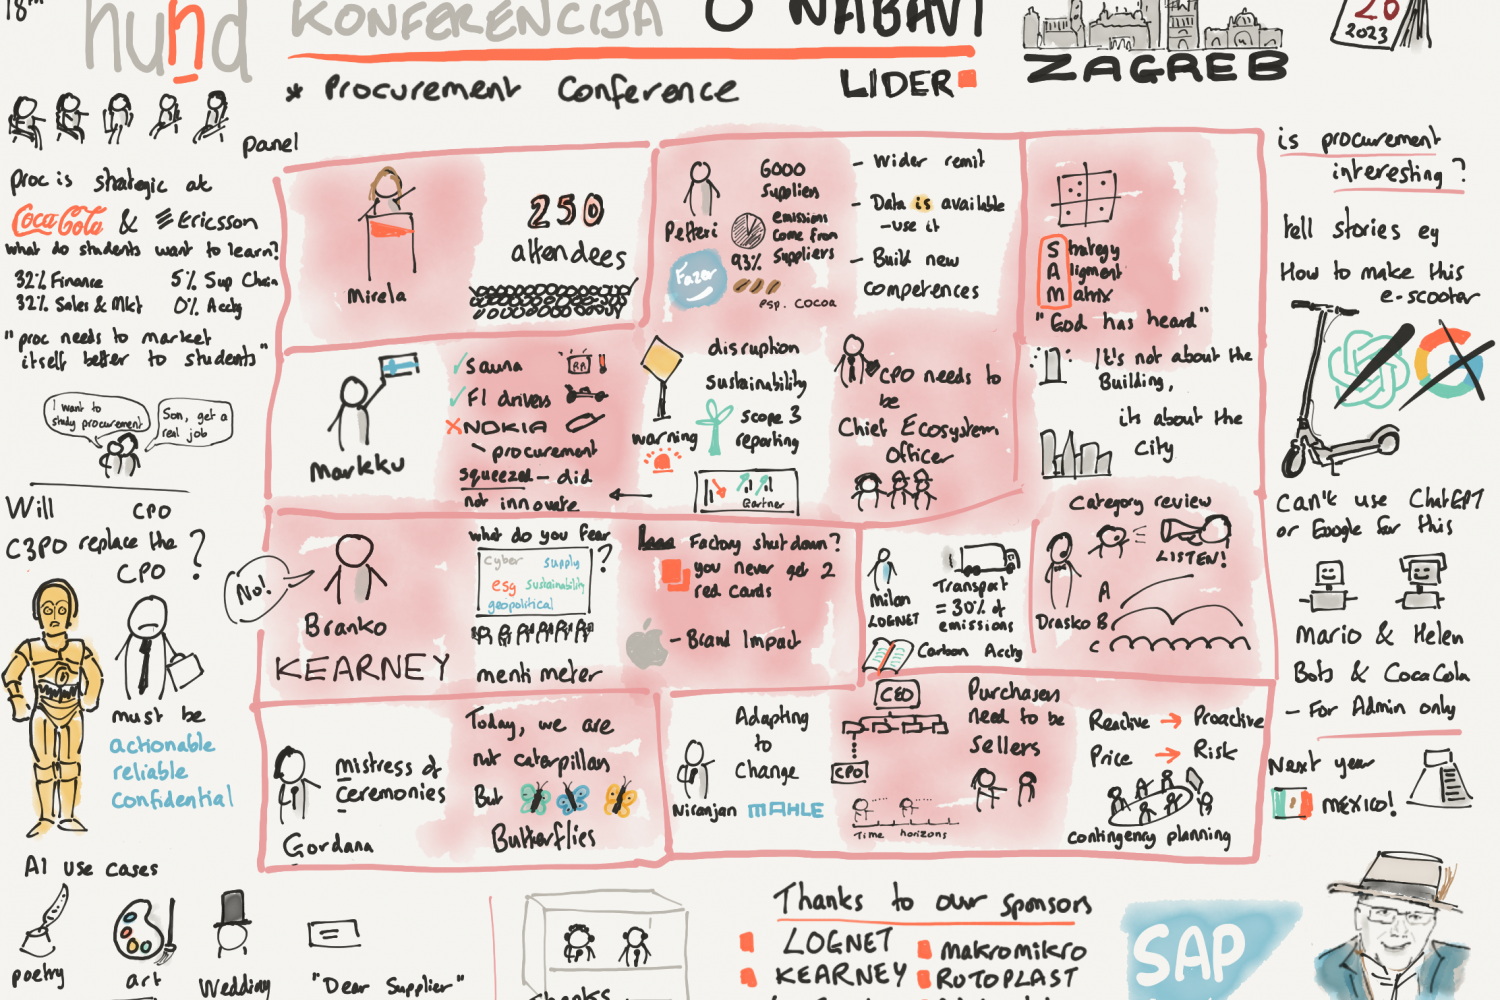 18th
hund
KONFERENCIJA O NABAVI
* Procurement Conference
LIDER
ZAGREB
20
2023
Panel
proc is strategic at
Coca-Cola & Ericsson
what do students want to learn?
32% Finance
5% Sup Chain
32% Sales & Mkt
0% Acctg
"proc needs to market
itself better to students"
I want to
study procurement
Son, get a
real job
Will
C3PO replace the
CPO ?
CPO
must be
actionable
reliable
confidential
AI use cases
poetry
art
Wedding
"Dear Supplier"
Mirela
250
attendees
Petteri
Fazer
6000
suppliers
93%
emissions
come from
suppliers
esp. cocoa
- Wider remit
- Data is available
- use it
- Build new
competences
Strategy
Aligment
Matrix
"God has heard"
It's not about the
Building,
its about the
City
Markku
Sauna
F1 drivers
NOKIA
procurement
squeezed - did
not innovate
warning
disruption
sustainability
scope 3
reporting
Gartner
CPO needs to
be
Chief Ecosystem
Officer
No!
Branko
KEARNEY
what do you fear
?
cyber
supply
esg
sustainability
geopolitical
mentimeter
Factory shutdown?
you never get 2
red cards
- Brand Impact
Milan
LOGNET
Transport
= 30% of
emissions
Carbon Acctg
Category review
LISTEN!
Drasko
A
B
C
Gordana
Mistress of
Ceremonies
Today, we are
not caterpillars
But
Butterflies
Niranjan
MAHLE
Adapting
to
Change
CEO
CPO
Time horizons
Purchasers
need to be
sellers
Reactive → Proactive
Price → Risk
contingency planning
is procurement
interesting ?
tell stories eg
How to make this
e-scooter
Can't use ChatGPT
or Google for this
Mario & Helen
Bots @ CocaCola
- For Admin only
Next year
MEXICO!
Thanks
Thanks to our sponsors
LOGNET
makromikro
KEARNEY
ROTOPLAST
SAP